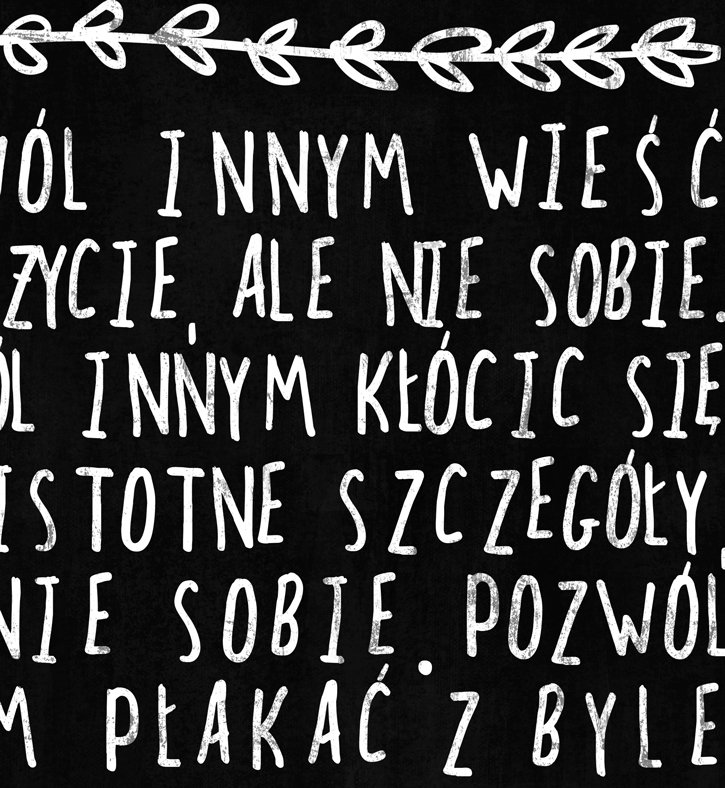 WÓL INNYM WIEŚĆ
ŻYCIE, ALE NIE SOBIE.
ÓL INNYM KŁÓCIC SIĘ
ISTOTNE SZCZEGÓŁY,
NIE SOBIE. POZWÓL
M PŁAKAĆ Z BYLE